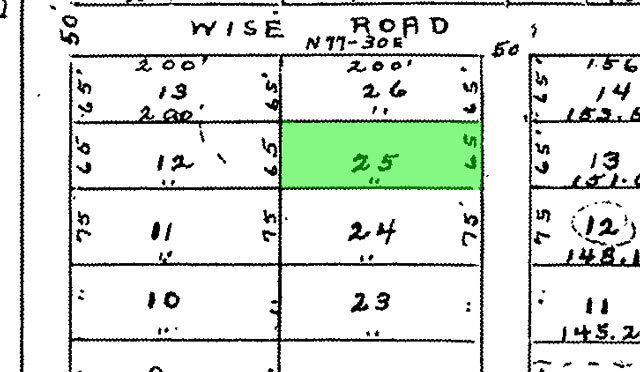 WISE ROAD
50
N 77-30 E
50
200' 200' 156
65' 13 65' 26 65' 65' 14
200' " 153.5
65 12 65 25 65 65' 13
" " 151.
75 11 75 24 75 75 12
" " 148.1
" 10 " 23 " " 11
" " 145.2